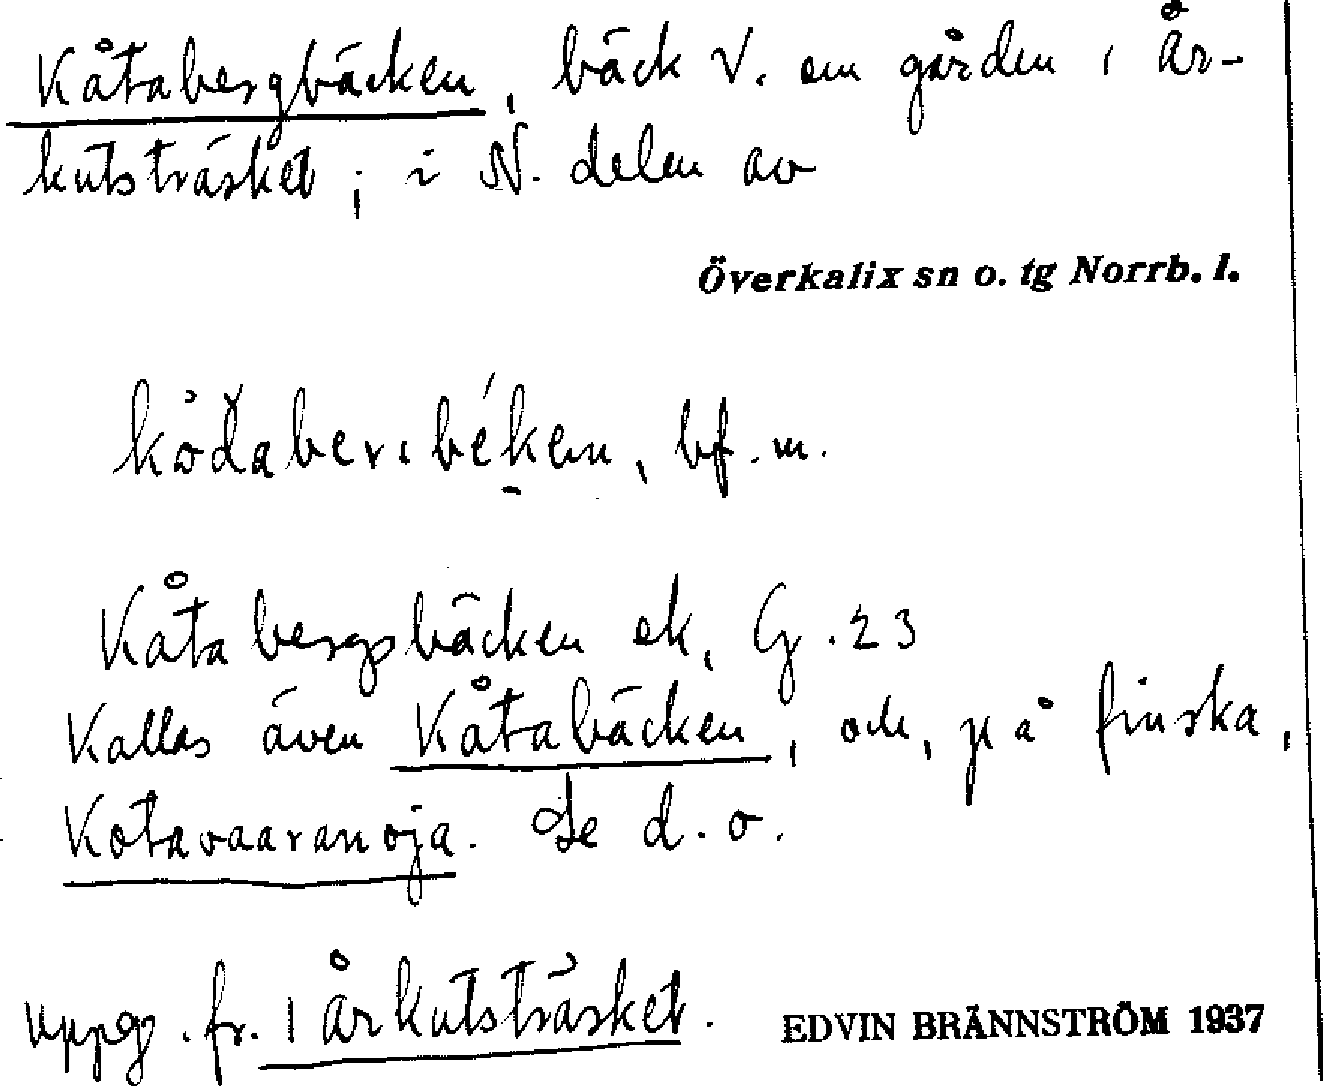 Kåtabergbäcken, bäck V. om gården i År-
kutsträsket; i N. delen av
Överkalix sn o. tg Norrb. l.
bf. m.
Kåtabergsbäcken ek, G. 23
Kallas även Kåtabäcken, och, på finska,
Kotavaaranoja. Se d. o.
uppg. fr. 1 Årkutsträsket.
EDVIN BRÄNNSTRÖM 1937